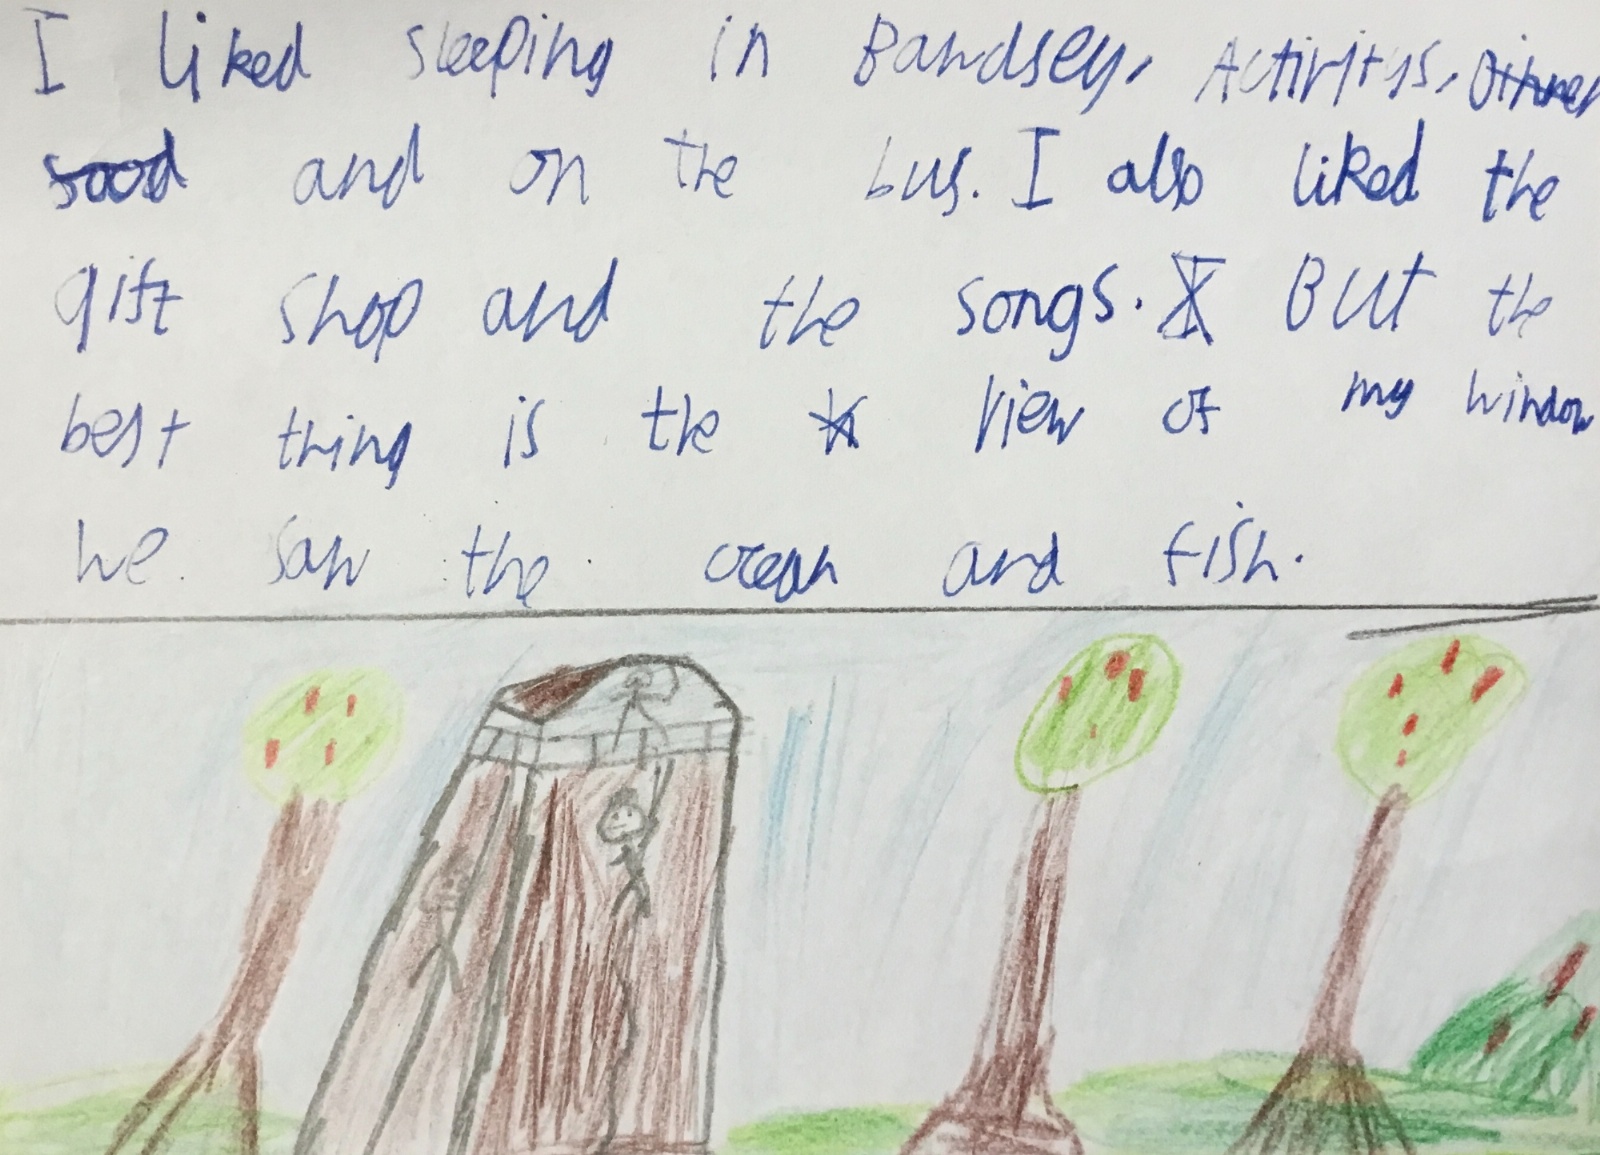 I liked sleeping in Bawdsey, Activitys, Dinner
food and on the bus. I also liked the
gift shop and the songs. But the
best thing is the view of my window
we saw the ocean and fish.